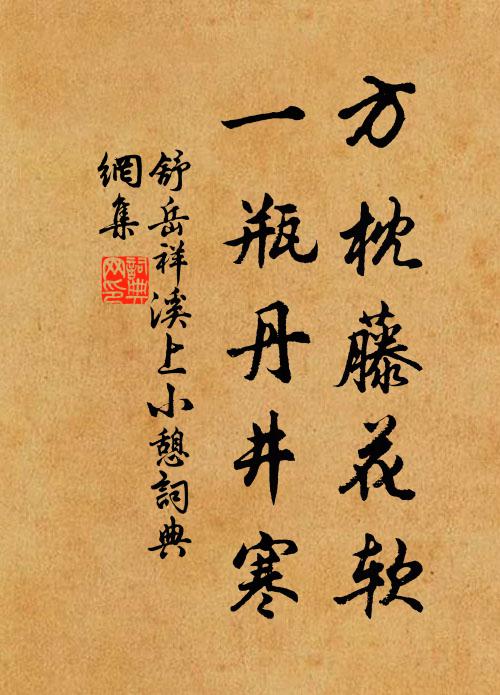 方枕藤花软
一瓶丹井寒
舒岳祥溪上小憩詞典
網集
詞典
网印